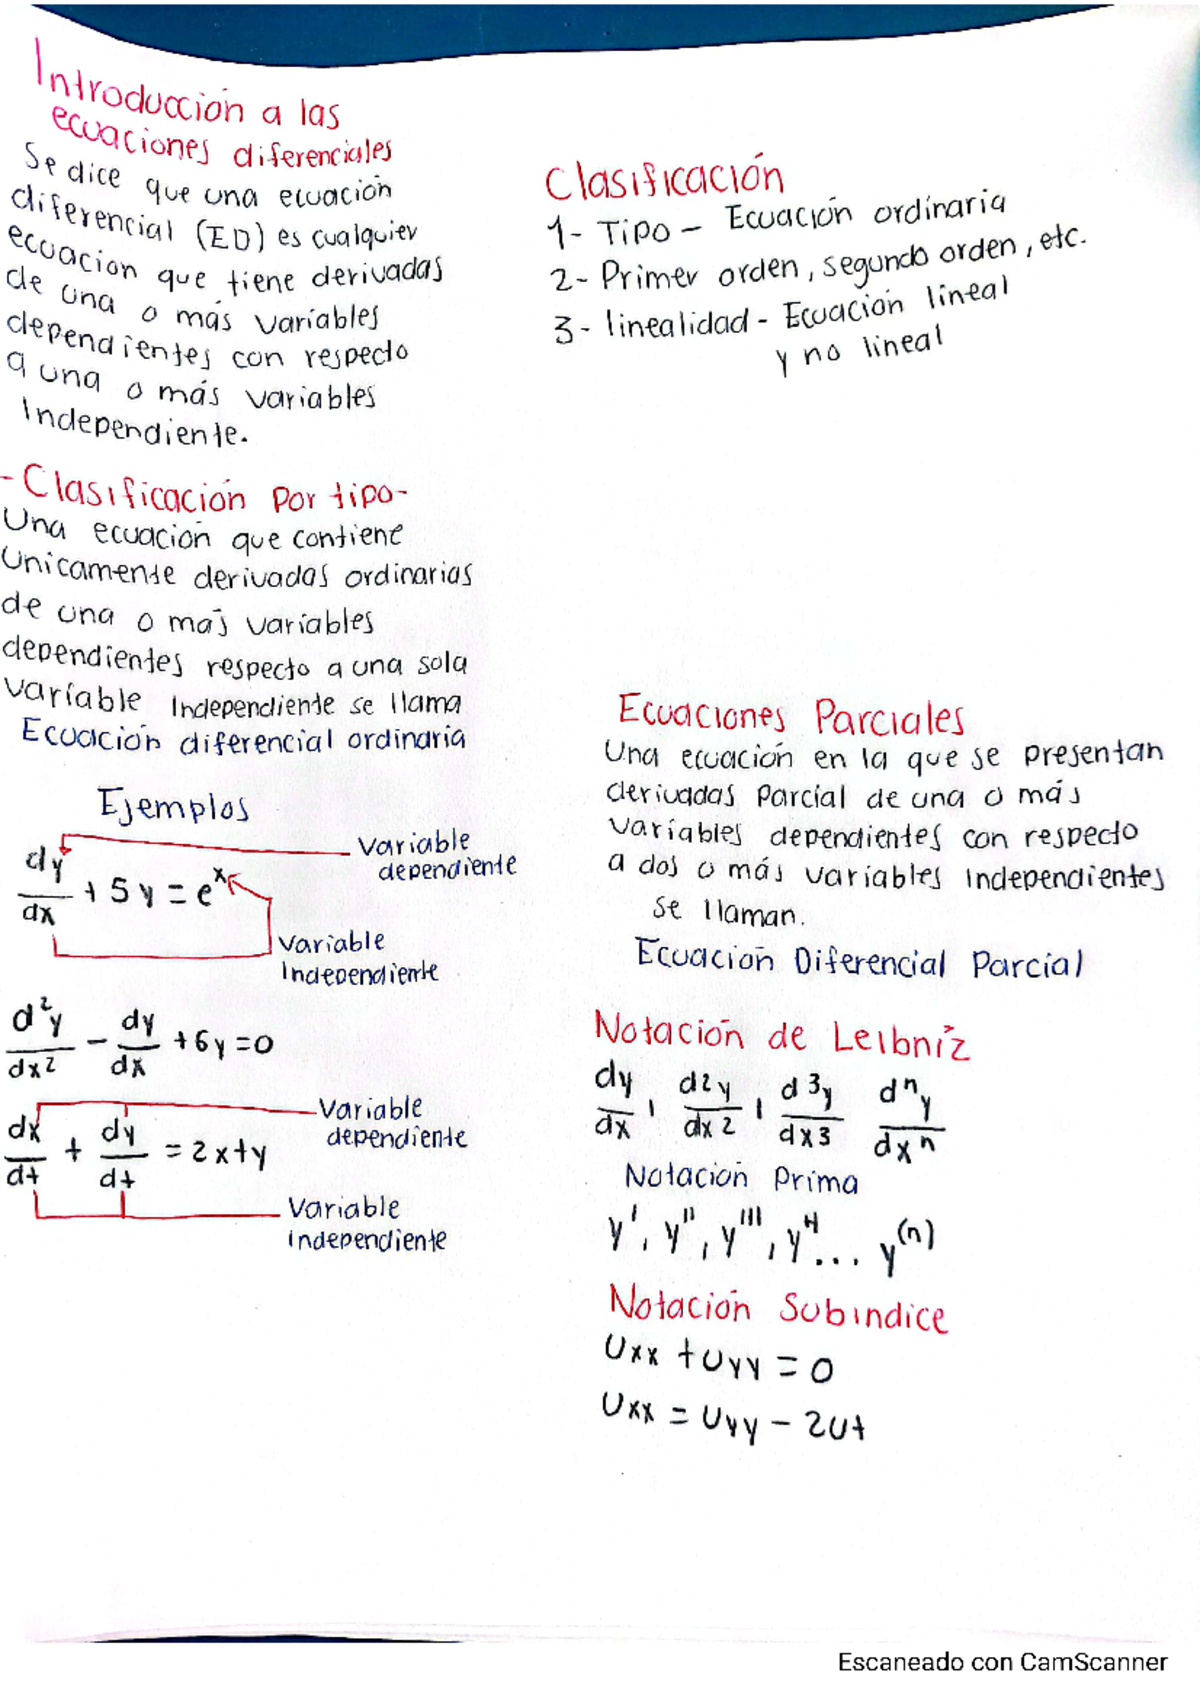 Introducción a las
ecuaciones diferenciales
Se dice que una ecuación
diferencial (ED) es cualquier
ecuacion que tiene derivadas
de una o más variables
dependientes con respecto
a una o más variables
Independiente.
-Clasificación por tipo-
Una ecuación que contiene
Unicamente derivadas ordinarias
de una o más variables
dependientes respecto a una sola
variable Independiente se llama
Ecuación diferencial ordinaria
Ejemplos
dy/dx + 5y = e^x
variable
dependiente
variable
Independiente
d²y/dx² - dy/dx + 6y = 0
dx/dt + dy/dt = 2x+y
Variable
dependiente
Variable
independiente
Clasificación
1- Tipo - Ecuación ordinaria
2- Primer orden, segundo orden, etc.
3- linealidad - Ecuación lineal
y no lineal
Ecuaciones Parciales
Una ecuación en la que se presentan
derivadas Parcial de una o más
variables dependientes con respecto
a dos o más variables Independientes
se llaman.
Ecuación Diferencial Parcial
Notación de Leibniz
dy/dx, d²y/dx², d³y/dx³ dⁿy/dxⁿ
Notación Prima
y', y'', y''', y⁴... y⁽ⁿ⁾
Notación Subindice
Uxx + Uyy = 0
Uxx = Uyy - 2Ut
Escaneado con CamScanner